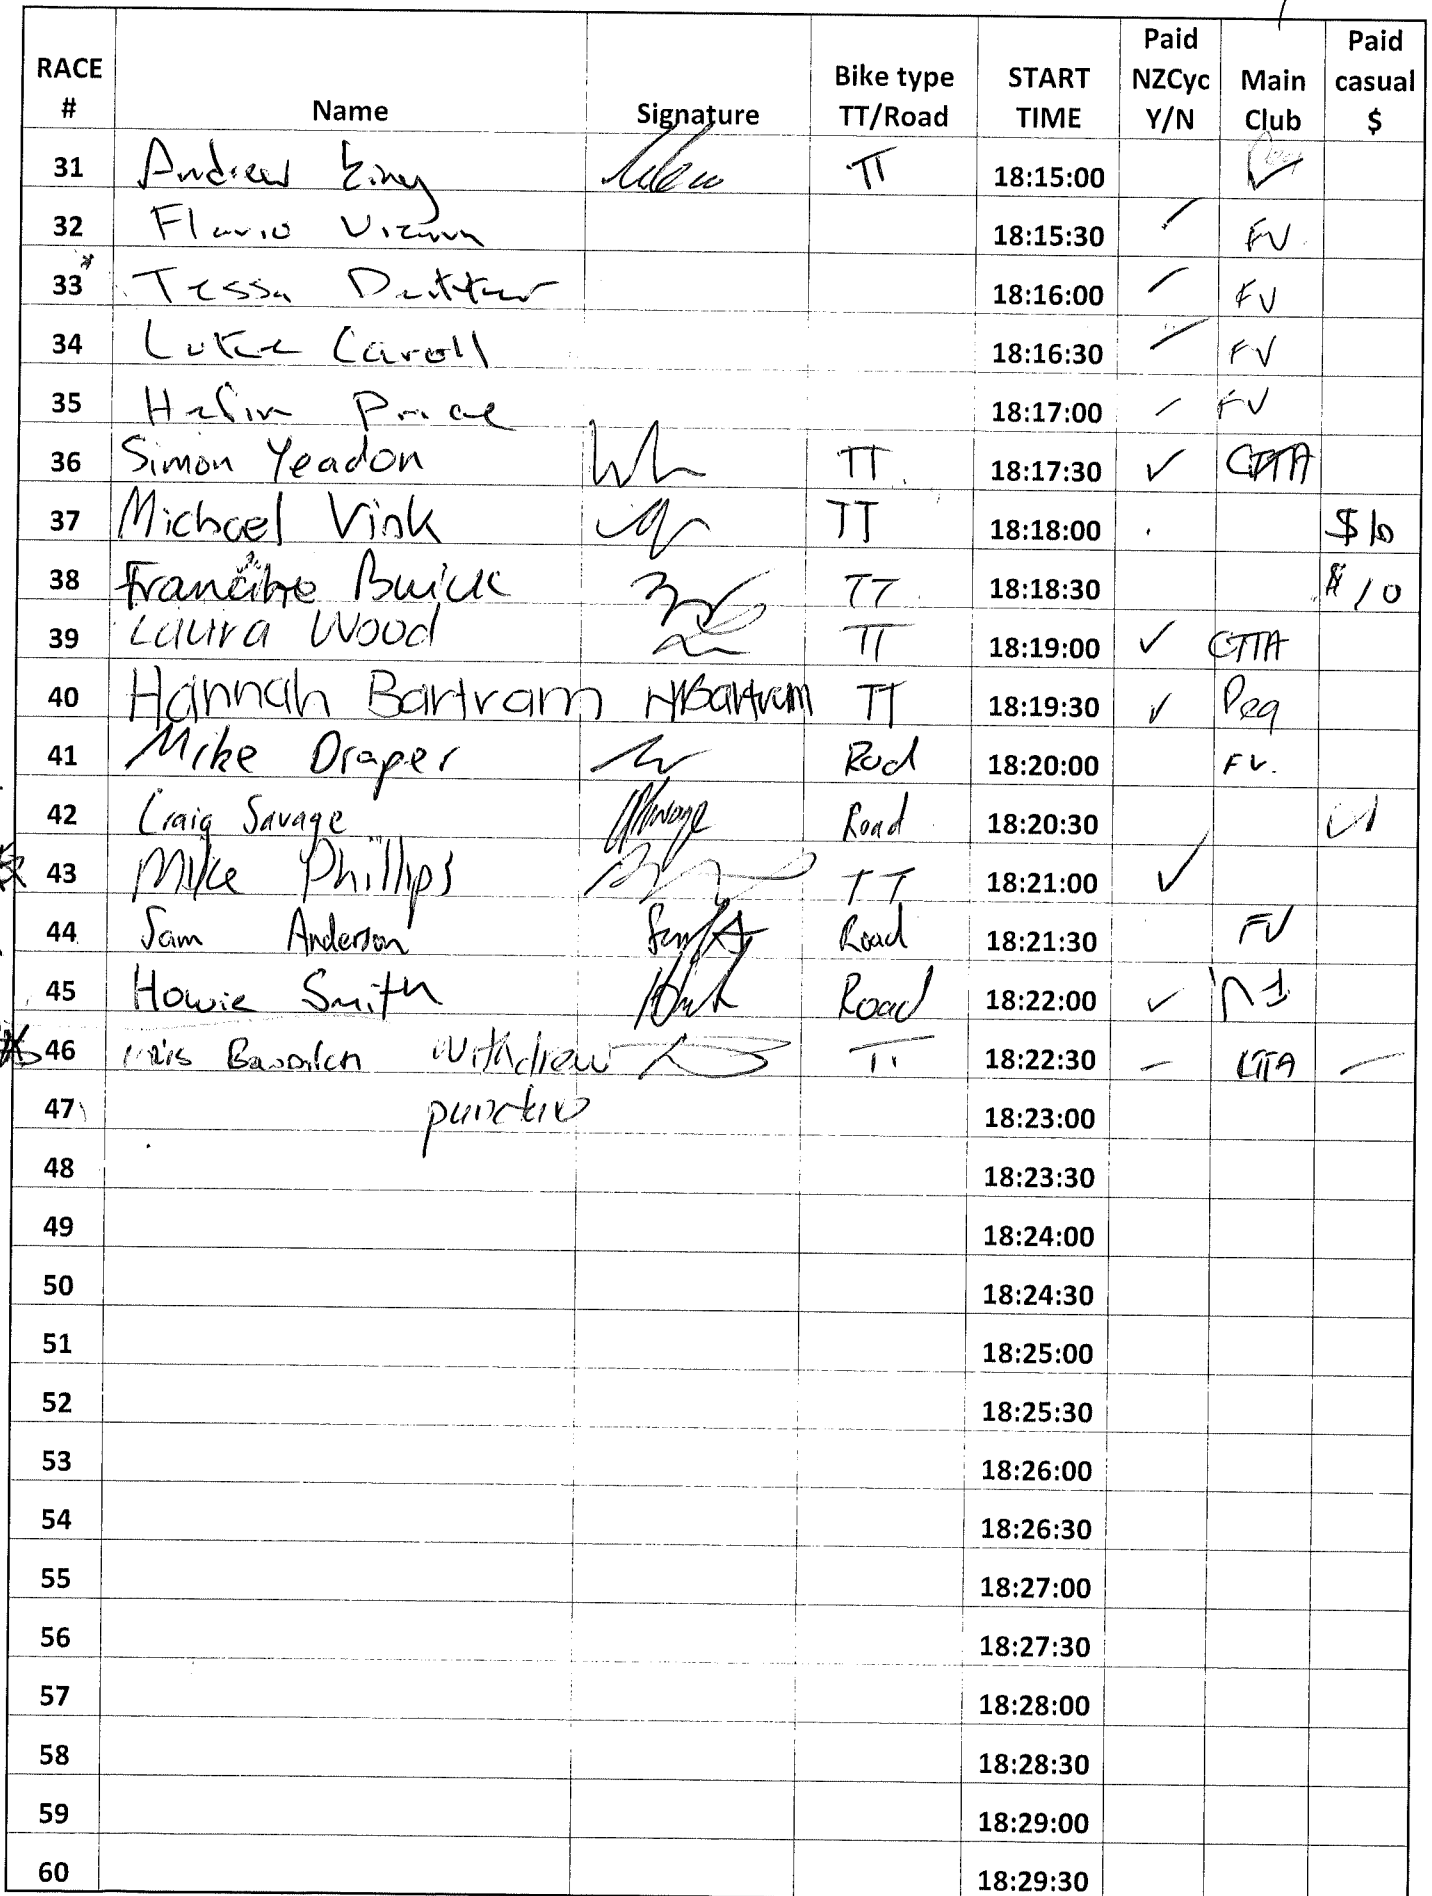 RACE # Name Signature Bike type TT/Road START TIME Paid NZCyc Y/N Main Club Paid casual $
31 Andrew King TT 18:15:00
32 Flavio 18:15:30 FV
33 Tessa 18:16:00 FV
34 Luke Caroll 18:16:30 FV
35 18:17:00 FV
36 Simon Yeadon TT 18:17:30 ✓ CTTA
37 Michael Vink TT 18:18:00 $10
38 Buick TT 18:18:30 $10
39 Laura Wood TT 18:19:00 ✓ CTTA
40 Hannah Bartram HBartram TT 18:19:30 ✓ Peg
41 Mike Draper Road 18:20:00 FV.
42 Craig Savage Road 18:20:30
43 Mike Phillips TT 18:21:00 ✓
44 Sam Anderson Road 18:21:30 FV
45 Howie Smith Road 18:22:00 ✓
46 withdrew TT 18:22:30 – CTTA –
47 18:23:00
48 18:23:30
49 18:24:00
50 18:24:30
51 18:25:00
52 18:25:30
53 18:26:00
54 18:26:30
55 18:27:00
56 18:27:30
57 18:28:00
58 18:28:30
59 18:29:00
60 18:29:30